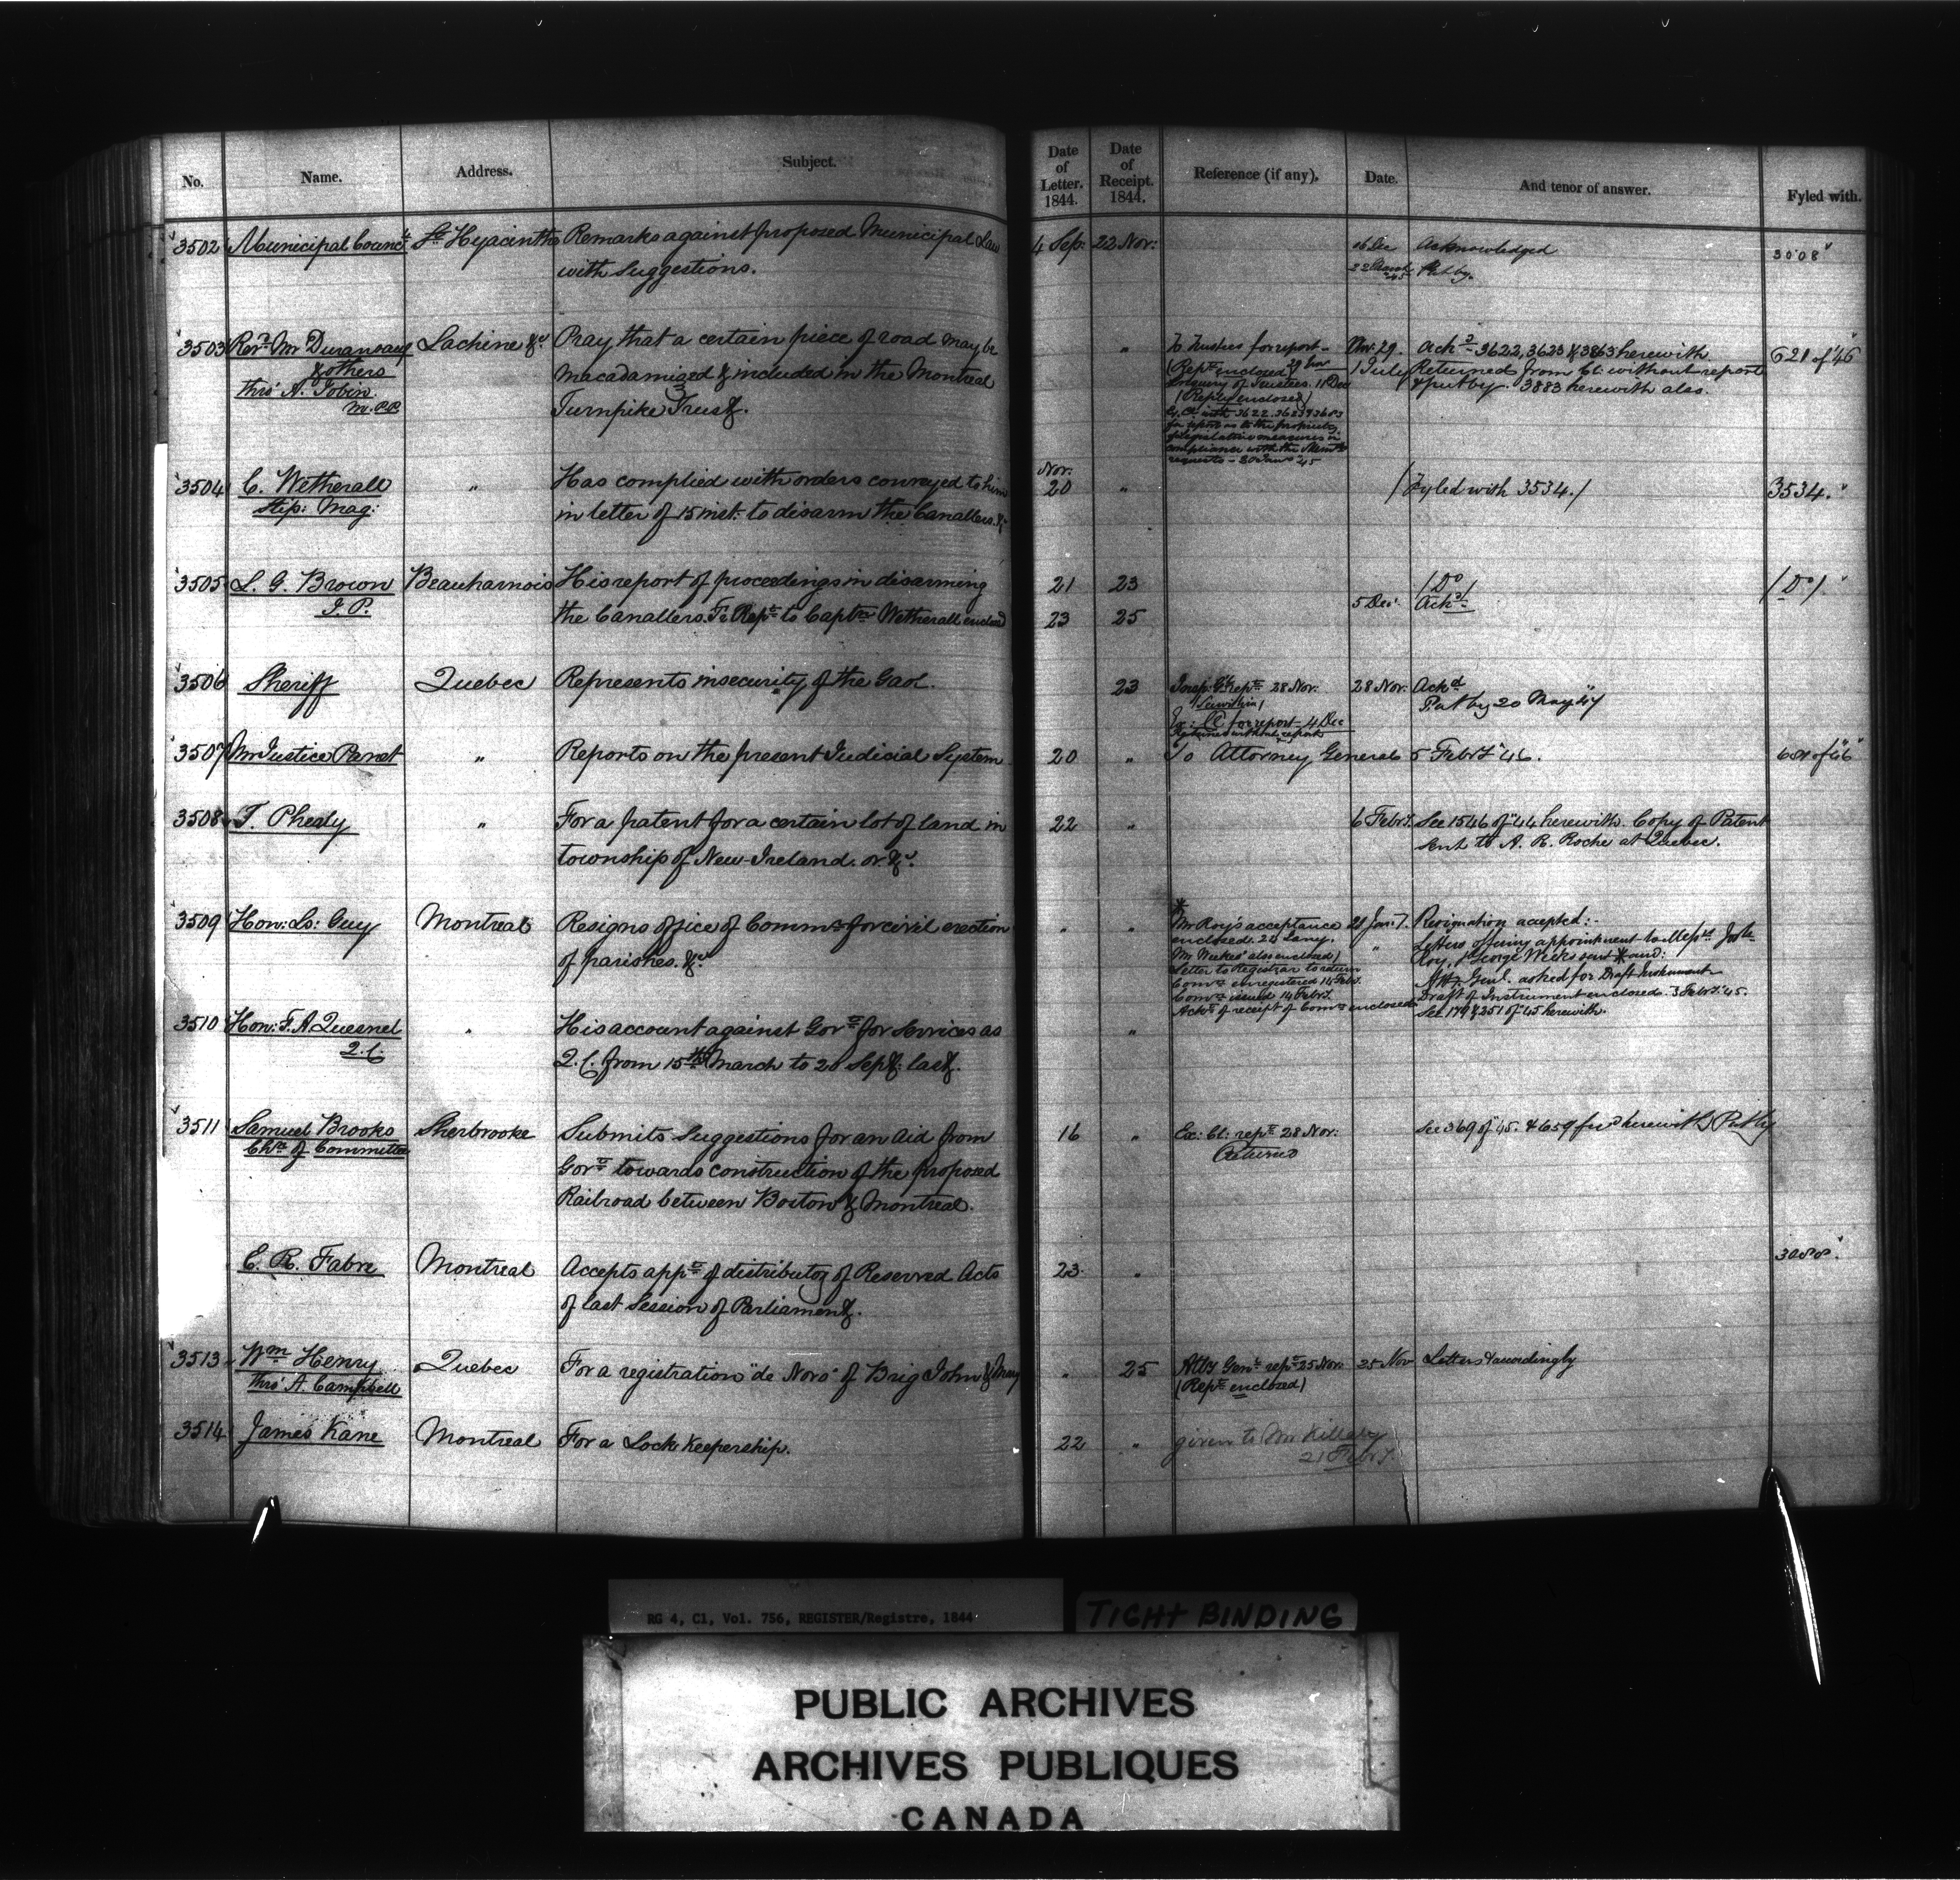 No. Name. Address. Subject. Date of Letter. 1844. Date of Receipt. 1844. Reference (if any). Date. And tenor of answer. Fyled with.
3502 Municipal Councl St Hyacinthe Remarks against proposed Municipal Law 4 Sep: 22 Nov: 16 Dec Acknowledged 3008
with Suggestions. Put by.
3503 Revd Mr Duranseau Lachine &c Pray that a certain piece of road may be " To Trustees for report Nov. 29. Ackd 3622, 3623 & 3863 herewith 621 of '46
& others macadamized & included in the Montreal (Rept enclosed) 29 Nov 1 July Returned from Ct. without report
thro' A. Jobin Turnpike Trust. Inquiry of Trustees. 11 Dec & put by. 3883 herewith also.
M.P.P. (Reply enclosed)
for report as to the propriety
of Legislative measures in
compliance with the
requests
3504 C. Wetherall " Has complied with orders conveyed to him Nov. 20 " (Fyled with 3534.) 3534.
Stip: Mag: in letter of 15 inst: to disarm the Canallers. &c
3505 L. G. Brown Beauharnois His report of proceedings in disarming 21 23 (Do) (Do).
J. P. the Canallers. Rept to Captn Wetherall enclosed 23 25 5 Dec. Ackd
3506 Sheriff Quebec Represents insecurity of the Gaol. 23 Insp: Gl rept 28 Nov: 28 Nov. Ackd
Ex: CC for report 4 Dec Put by 20 May
Returned without report
3507 Mr Justice Panet " Reports on the present Judicial System 20 " To Attorney General 5 Feby '46.
3508 T. Phealy " For a patent for a certain lot of land in 22 " 6 Feby. See 1546 of '44 herewith. Copy of Patent
township of New-Ireland. or. &c. sent to A. R. Roche at Quebec.
3509 Hon: Ls: Guy Montreal Resigns office of Commr for civil erection " " * Mr Roy's acceptance Resignation accepted:-
of parishes. &c. enclosed. " Letters offering appointment to Messrs
Mr Weekes' also enclosed) Roy, & George Weekes sent * and:
Letter to Registrar to return Atty. Genl. asked for Draft Instrument
Comn unregistered 14 Feby. Draft of Instrument enclosed. 3 Feby. '45.
Comn issued 14 Feby. See 179 & 251 of 45 herewith.
Ackt of receipt of Comn enclosed
3510 Hon: F. A. Quesnel " His account against Govt for services as "
Q. C. Q. C. from 15th March to 20 Sept: last.
3511 Samuel Brooks Sherbrooke Submits Suggestions for an Aid from 16 " Ex: Ct: rept 28 Nov: See 369 of 45. & 659 herewith Put by
Chn of Committee Govt towards construction of the proposed Returned
Railroad between Boston & Montreal.
E. R. Fabre Montreal Accepts appt of distributor of Reserved Acts 23 "
of last Session of Parliament.
3513 Wm Henry Quebec For a registration "de Novo" of Brig John & Mary " 25 Atty Genl rept 25 Nov: 25 Nov Letters accordingly
thro' A. Campbell (Rept enclosed)
3514 James Kane Montreal For a Lock Keepership. 22 " given to Mr Killaly
21 Feby.
RG 4, C1, Vol. 756, REGISTER/Registre, 1844
TIGHT BINDING
PUBLIC ARCHIVES
ARCHIVES PUBLIQUES
CANADA